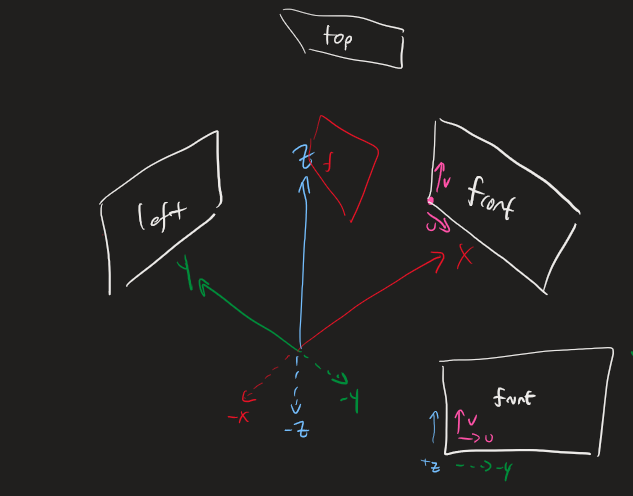 top
Z
f
left
front
v
u
Y
X
-X
-Z
-Y
front
v
u
+Z
-Y